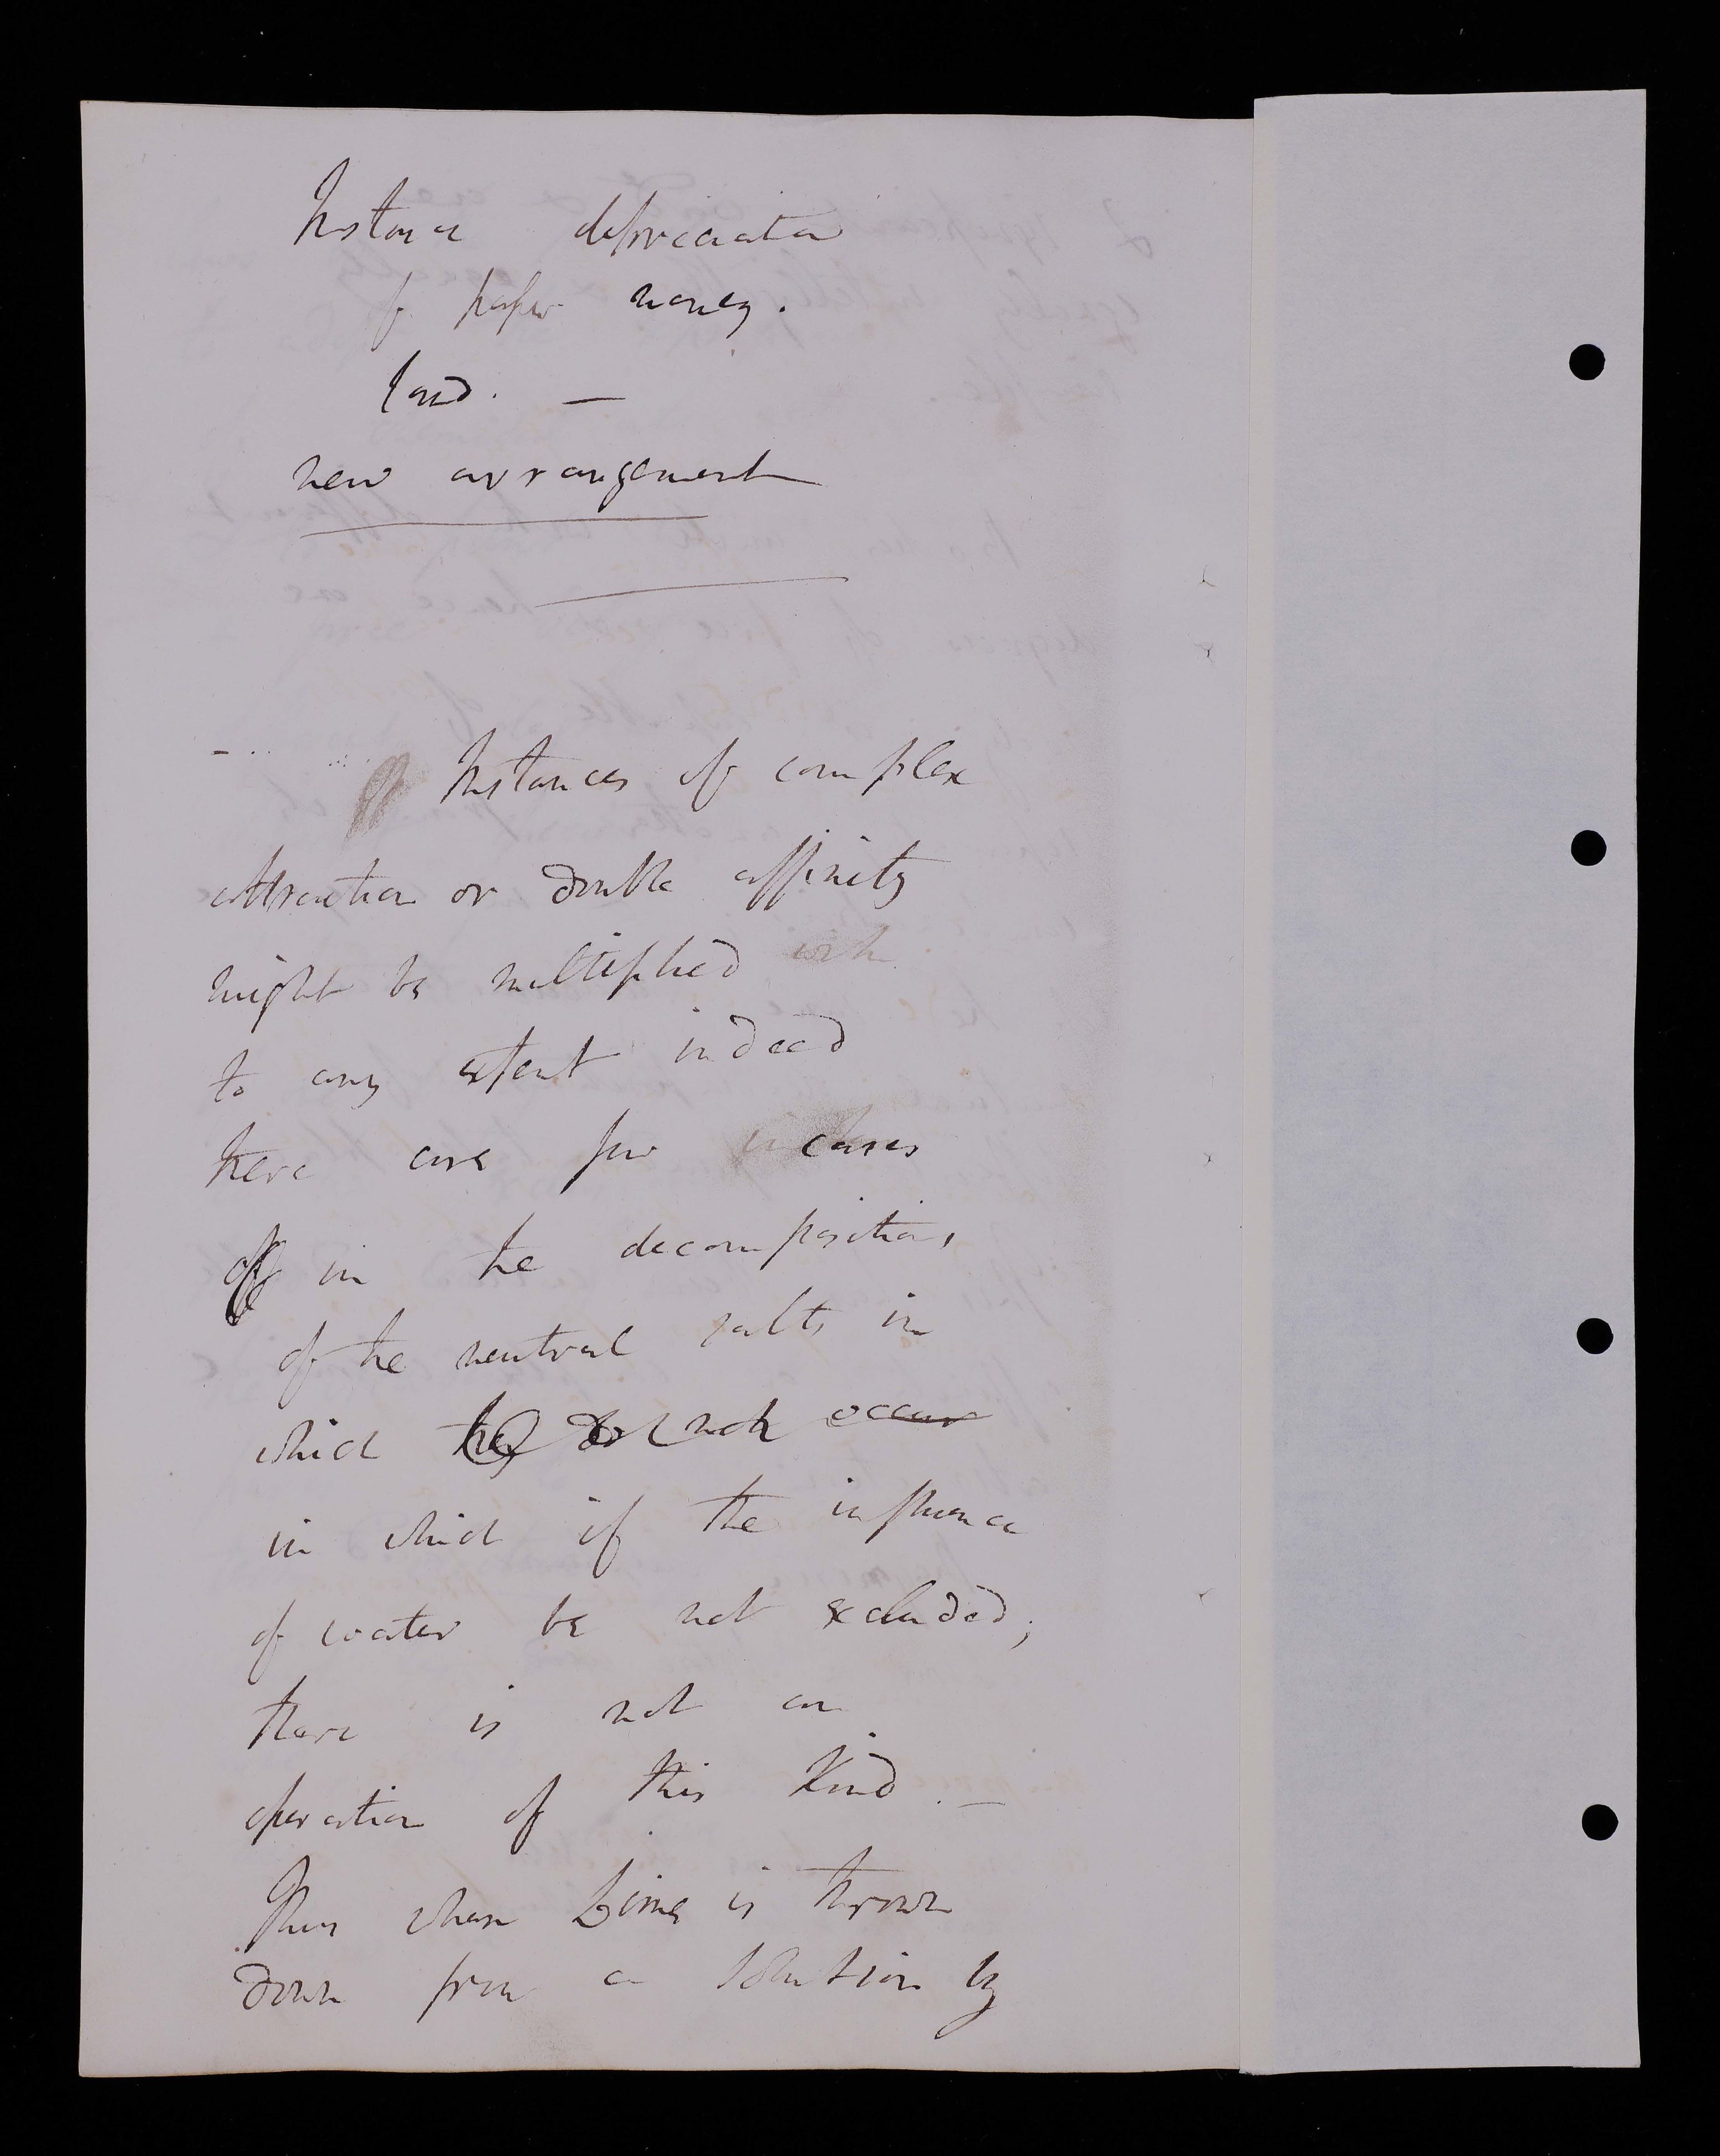 Instance depreciation
of paper money.
land. —
new arrangement
Instances of complex
attraction or double affinity
might be multiplied
to any extent indeed
there are few cases
in the decompositions
of the neutral salts in
which they do not occur
in which if the influence
of water be not excluded;
there is not an
operation of this Kind. —
Thus when Lime is thrown
down from a solution by